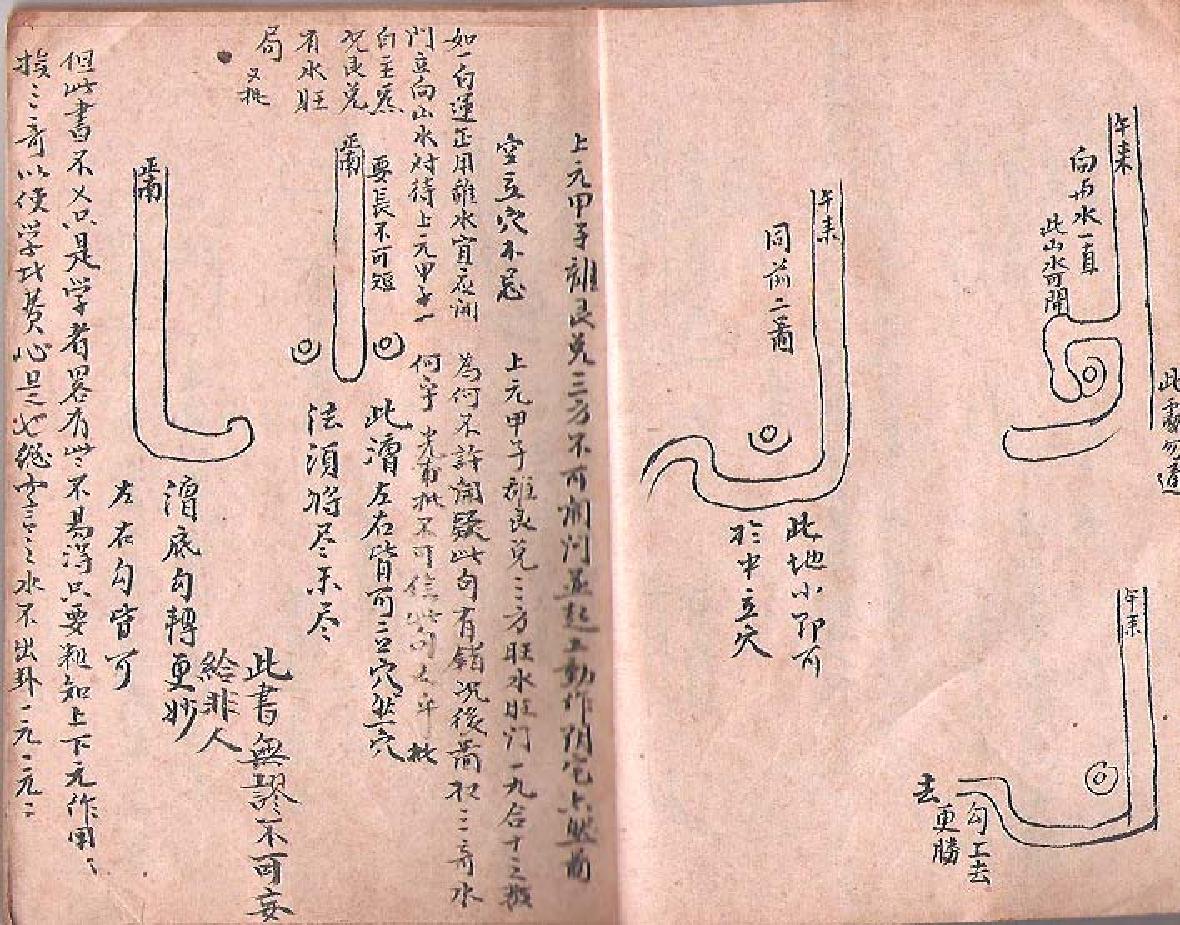 午来
向与水一直
此山水可開
此
午来
同前二啚
此地小即可
於中立穴
午来
勾工去
去更勝
上元甲子離艮兌三方不可開門並起工動作陰宅亦然前
空立穴不忌
上元甲子離艮兌三方旺水旺门一九合十三般
如一白運正用離水宜在開
為何不許開疑此句有錯况後啚杁三奇水
门立向山水对待上元甲子一
何乎 批不可信此句大平批
白主系
况艮兌
有水旺
局
又批
要長不可短
此漕左右皆可立穴然穴
法須将尽未尽
漕底勾轉更妙
左右勾皆可
此書無謬不可妄
給非人
但此書不又只是学者畧有些不易得只要粗知上下元作用
三奇以便学 費心是也総 言之水不出卦一元一元二